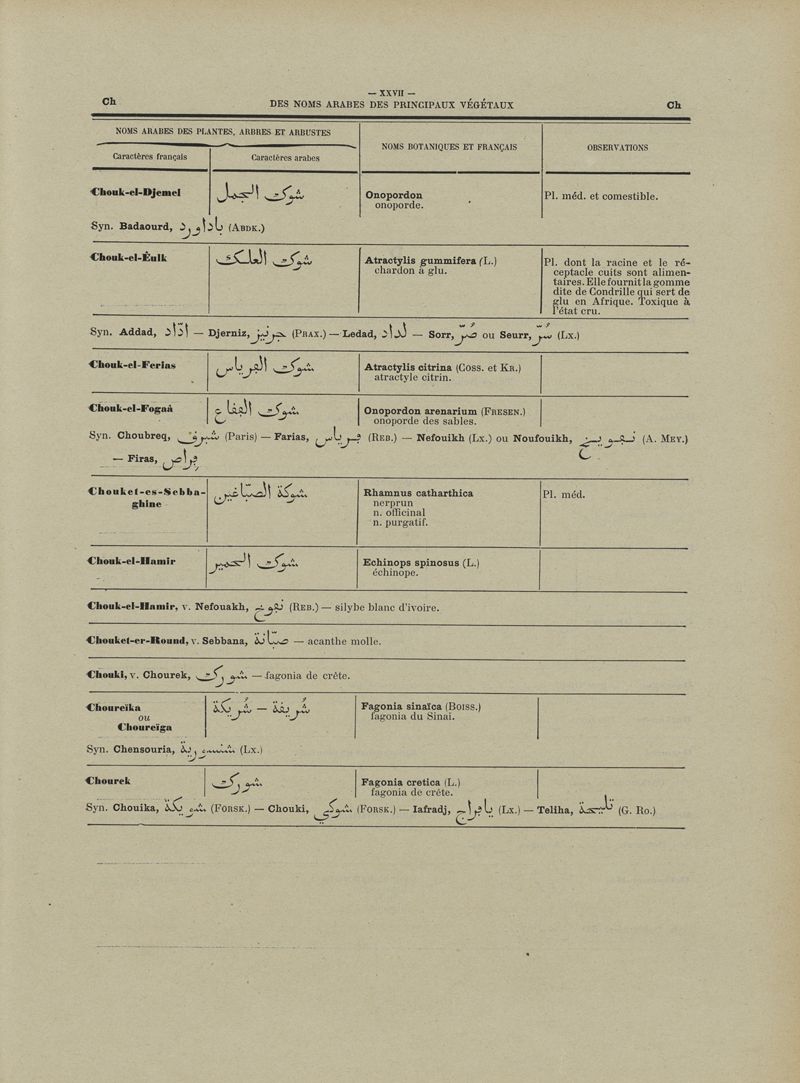 — XXVII —
Ch DES NOMS ARABES DES PRINCIPAUX VÉGÉTAUX Ch
NOMS ARABES DES PLANTES, ARBRES ET ARBUSTES
NOMS BOTANIQUES ET FRANÇAIS
OBSERVATIONS
Caractères français
Caractères arabes
Chouk-el-Djemel شوك الجمل Onopordon Pl. méd. et comestible.
onoporde.
Syn. Badaourd, باداورد (ABDK.)
Chouk-el-Êulk شوك العلك Atractylis gummifera (L.) Pl. dont la racine et le ré-
chardon à glu. ceptacle cuits sont alimen-
taires. Elle fournit la gomme
dite de Condrille qui sert de
glu en Afrique. Toxique à
l'état cru.
Syn. Addad, ادّاد — Djerniz, جرنيز (PRAX.) — Ledad, لداد — Sorr, صُرّ ou Seurr, سُرّ (LX.)
Chouk-el-Ferias شوك الفرياس Atractylis citrina (COSS. et KR.)
atractyle citrin.
Chouk-el-Fogaâ شوك الفقاع Onopordon arenarium (FRESEN.)
onoporde des sables.
Syn. Choubreq, شبرق (Paris) — Farias, فرياس (REB.) — Nefouikh (LX.) ou Noufouikh, نفويخ (A. MEY.)
— Firas, فراص
Chouket-es-Sebba- شوكة الصبّاغين Rhamnus catharthica Pl. méd.
ghine nerprun
n. officinal
n. purgatif.
Chouk-el-Hamir شوك الحمير Echinops spinosus (L.)
échinope.
Chouk-el-Hamir, v. Nefouakh, (REB.) — silybe blanc d'ivoire.
Chouket-er-Round, v. Sebbana, صبّانة — acanthe molle.
Chouki, v. Chourek, شورك — fagonia de crête.
Choureïka شُريقة — شُريكة Fagonia sinaïca (BOISS.)
ou fagonia du Sinaï.
Choureïga
Syn. Chensouria, (LX.)
Chourek شورك Fagonia cretica (L.)
fagonia de crête.
Syn. Chouika, شويكة (FORSK.) — Chouki, شوكي (FORSK.) — Iafradj, يافراج (LX.) — Teliha, تليحة (G. RO.)